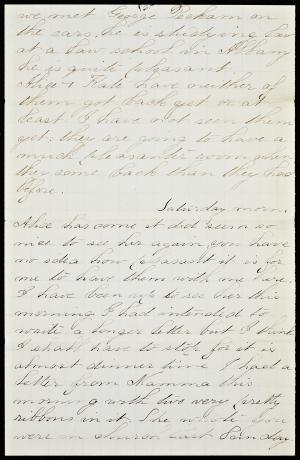 we met George Peckam on
the cars, he is studying law
at a law school in Albany
he is quite pleasant.
Alice & Kate have neither of
them got back yet or at
least I have not seen them
yet; they are going to have a
much pleasanter room when
they come back than they had
before.
Saturday morn.
Alice has come it did seem so
nice to see her again, you have
no idea how pleasant it is for
me to have them with me here.
I have been up to see her this
morning I had intended to
write a longer letter but I think
I shall have to stop for it is
almost dinner time I had a
letter from Mamma this
morning with two very pretty
ribbons in it, She wrote you
were in church last Sunday